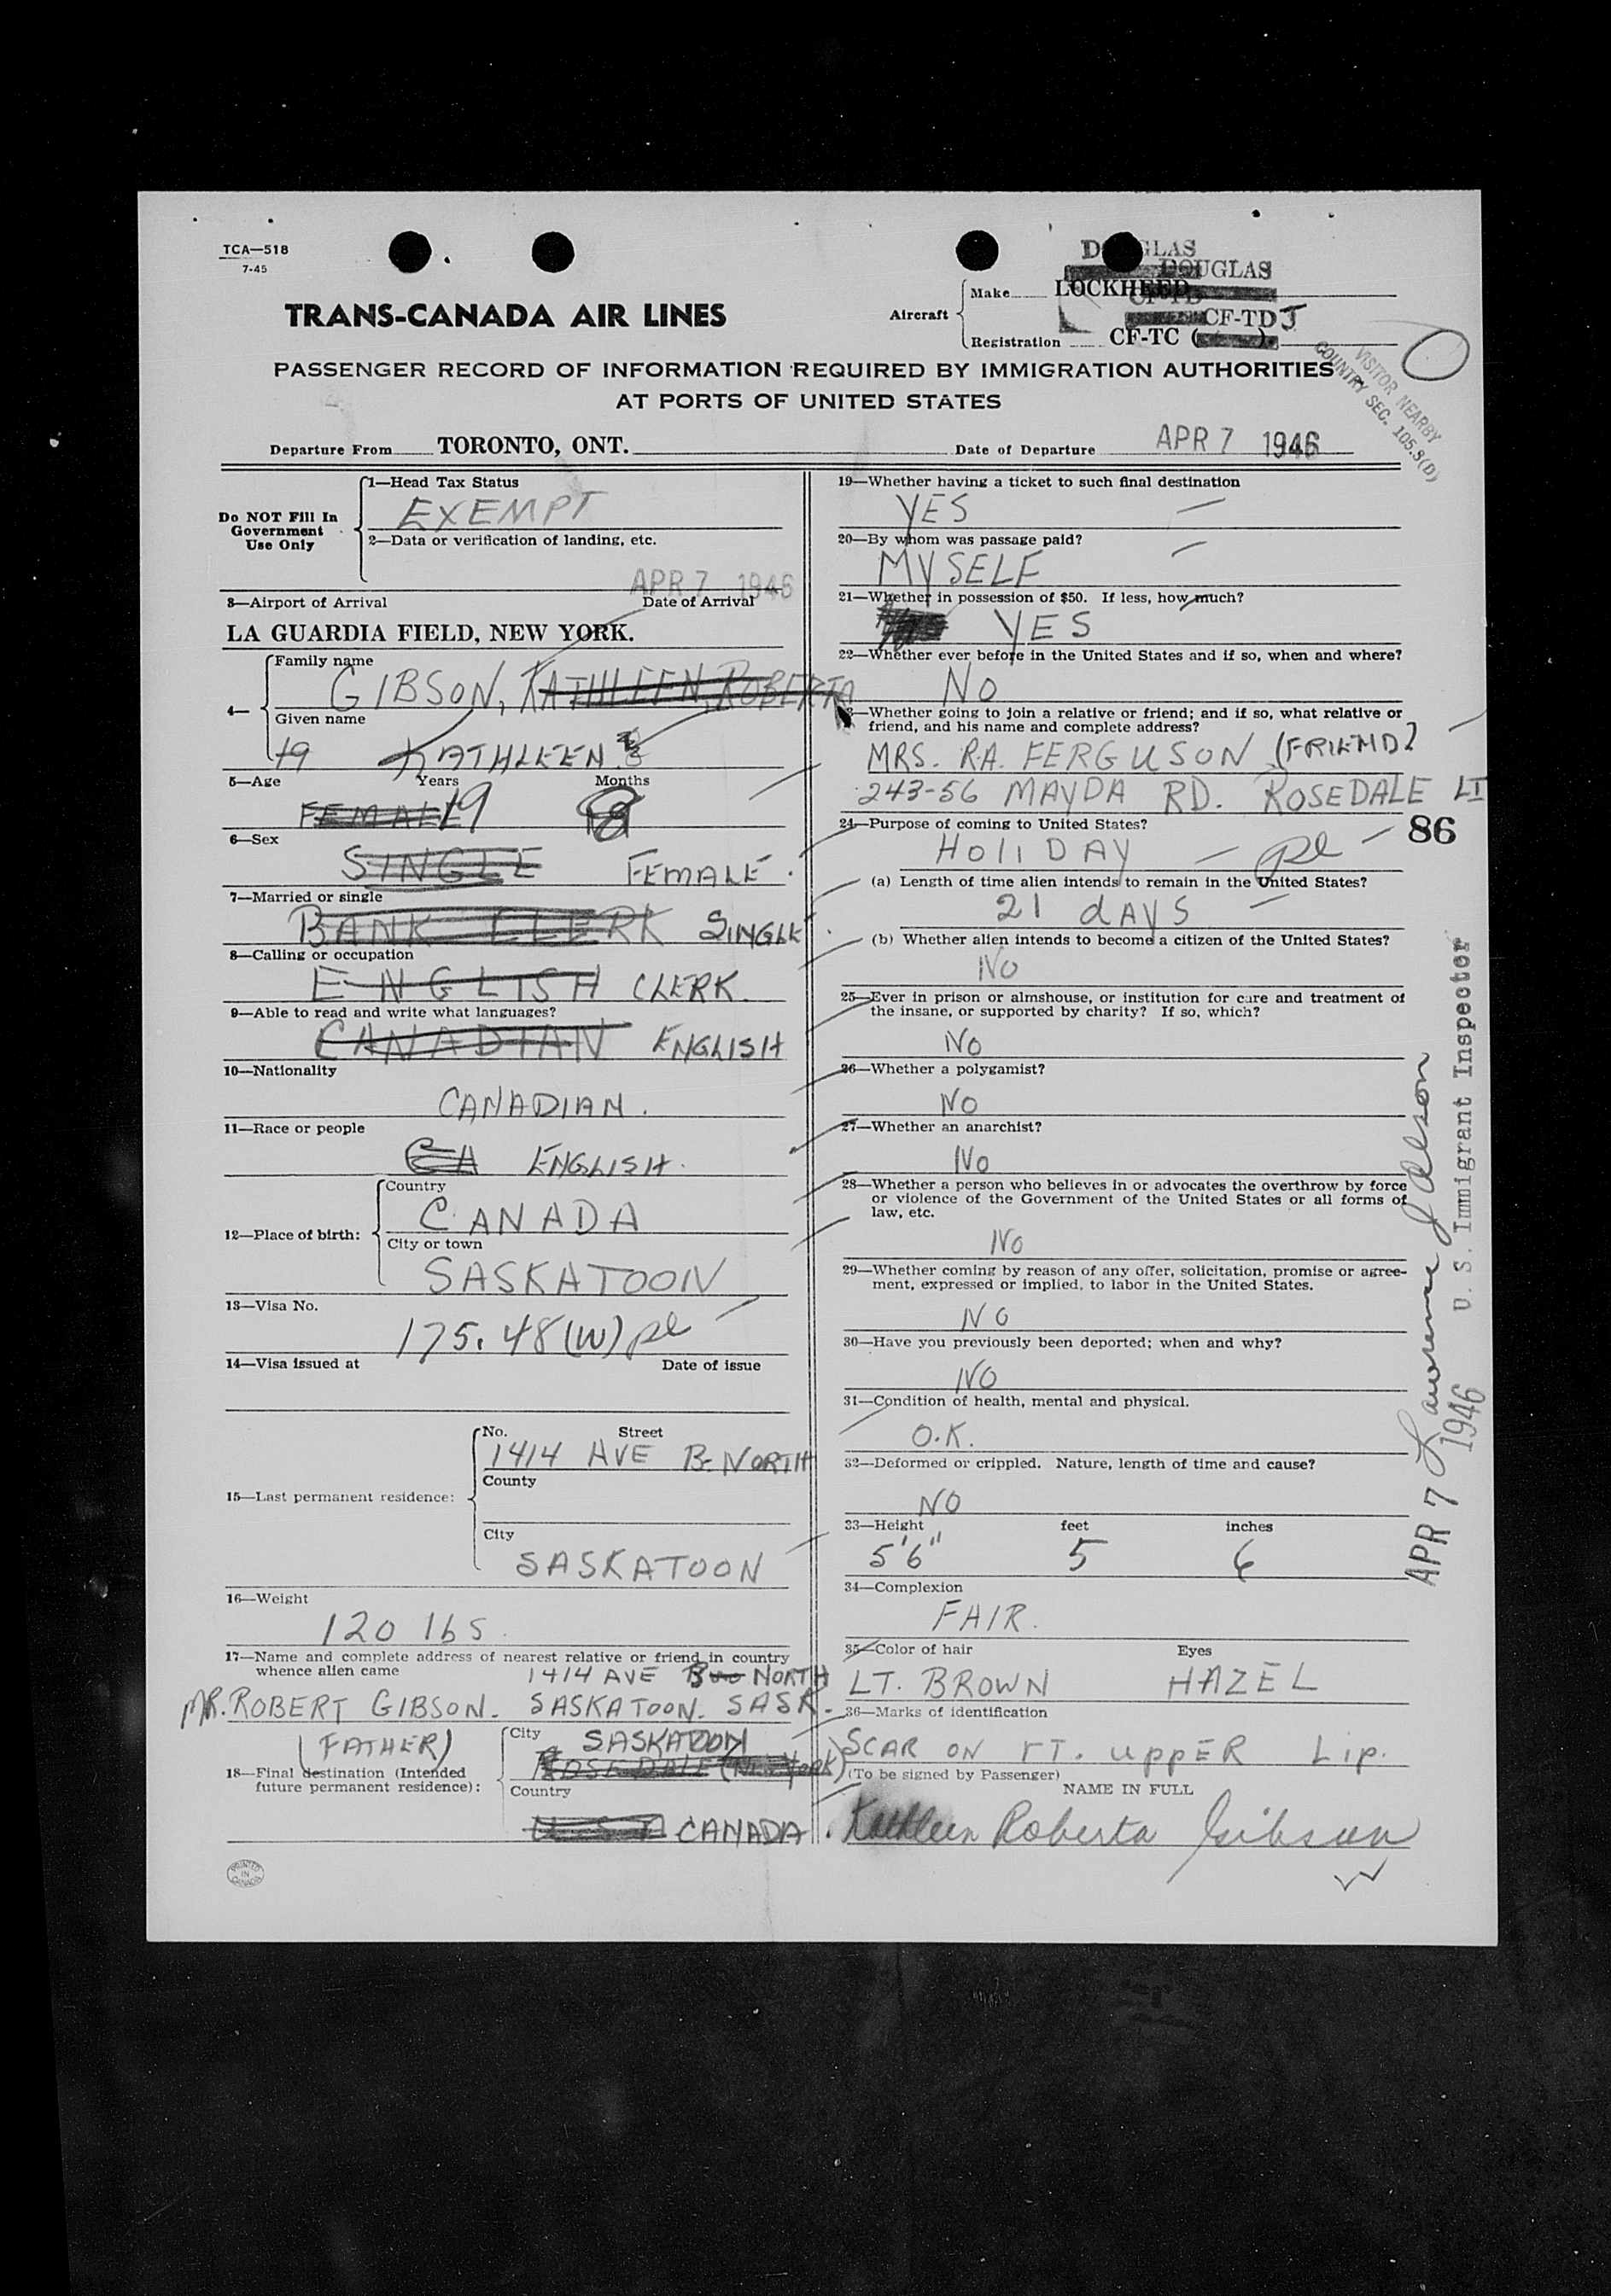 TCA—518
7-45
DOUGLAS
DOUGLAS
TRANS-CANADA AIR LINES
Aircraft
Make LOCKHEED
CF-TDJ
Registration CF-TC (
VISITOR NEARBY
COUNTRY SEC. 105.3(D)
PASSENGER RECORD OF INFORMATION REQUIRED BY IMMIGRATION AUTHORITIES
AT PORTS OF UNITED STATES
Departure From TORONTO, ONT.
Date of Departure APR 7 1946
Do NOT Fill In
Government
Use Only
1—Head Tax Status
EXEMPT
2—Data or verification of landing, etc.
APR 7 1946
3—Airport of Arrival Date of Arrival
LA GUARDIA FIELD, NEW YORK.
4—
Family name
GIBSON, KATHLEEN, ROBERTA
Given name
19 KATHLEEN
5—Age Years Months
FEMALE 19 8
6—Sex
SINGLE FEMALE.
7—Married or single
BANK CLERK SINGLE
8—Calling or occupation
ENGLISH CLERK.
9—Able to read and write what languages?
CANADIAN ENGLISH
10—Nationality
CANADIAN.
11—Race or people
CA ENGLISH.
12—Place of birth:
Country
CANADA
City or town
SASKATOON
13—Visa No.
175.48(W) pl
14—Visa issued at Date of issue
15—Last permanent residence:
No. Street
1414 AVE B. NORTH
County
City
SASKATOON
16—Weight
120 lbs.
17—Name and complete address of nearest relative or friend in country
whence alien came
1414 AVE B NORTH
MR. ROBERT GIBSON. SASKATOON. SASK.
(FATHER)
18—Final destination (Intended
future permanent residence):
City SASKATOON
ROSEDALE (New York)
Country
U.S.A CANADA.
PRINTED
IN
CANADA
19—Whether having a ticket to such final destination
YES
20—By whom was passage paid?
MYSELF
21—Whether in possession of $50. If less, how much?
YES
22—Whether ever before in the United States and if so, when and where?
NO
23—Whether going to join a relative or friend; and if so, what relative or
friend, and his name and complete address?
MRS. R.A. FERGUSON (FRIEND)
243-56 MAYDA RD. ROSEDALE LI
24—Purpose of coming to United States?
86
HOLIDAY pl
(a) Length of time alien intends to remain in the United States?
21 dAYS
(b) Whether alien intends to become a citizen of the United States?
NO
25—Ever in prison or almshouse, or institution for care and treatment of
the insane, or supported by charity? If so, which?
NO
26—Whether a polygamist?
NO
27—Whether an anarchist?
NO
28—Whether a person who believes in or advocates the overthrow by force
or violence of the Government of the United States or all forms of
law, etc.
NO
29—Whether coming by reason of any offer, solicitation, promise or agree-
ment, expressed or implied, to labor in the United States.
NO
30—Have you previously been deported; when and why?
NO
31—Condition of health, mental and physical.
O.K.
32—Deformed or crippled. Nature, length of time and cause?
NO
33—Height feet inches
5'6" 5 6
34—Complexion
FAIR.
35—Color of hair Eyes
LT. BROWN HAZEL
36—Marks of identification
SCAR ON RT. UPPER LIP.
(To be signed by Passenger)
NAME IN FULL
Kathleen Roberta Gibson
APR 7 1946
Lawrence J Olson
U. S. Immigrant Inspector